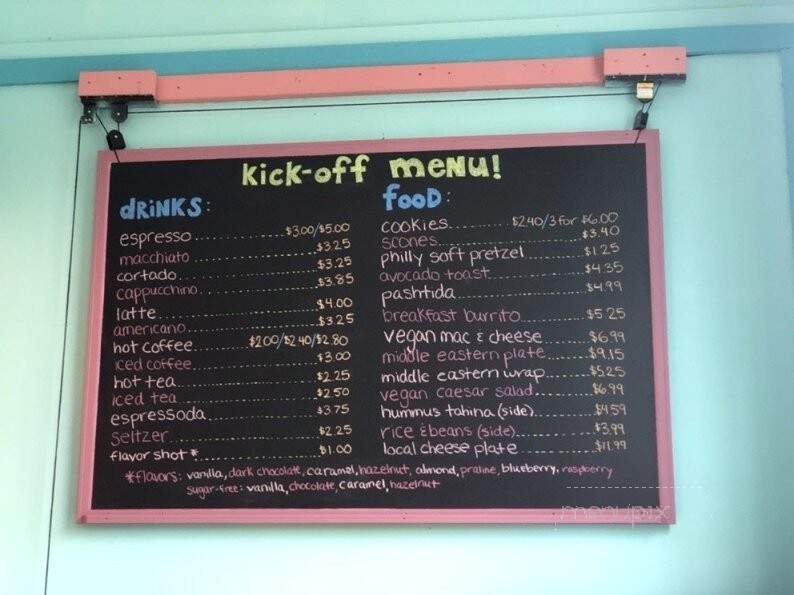 kick-off menu!
drinks:
espresso.......... $3.00/$5.00
macchiato.......... $3.25
cortado.......... $3.25
cappucchino.......... $3.85
latte.......... $4.00
americano.......... $3.25
hot coffee.......... $2.00/$2.40/$2.80
iced coffee.......... $3.00
hot tea.......... $2.25
iced tea.......... $2.50
espressoda.......... $3.75
seltzer.......... $2.25
flavor shot*.......... $1.00
food:
cookies.......... $2.40/3 for $6.00
scones.......... $3.40
philly soft pretzel.......... $1.25
avocado toast.......... $4.35
pashtida.......... $4.99
breakfast burrito.......... $5.25
vegan mac & cheese.......... $6.99
middle eastern plate.......... $9.15
middle eastern wrap.......... $5.25
vegan caesar salad.......... $6.99
hummus tahina (side).......... $4.59
rice & beans (side).......... $3.99
local cheese plate.......... $11.99
*flavors: vanilla, dark chocolate, caramel, hazelnut, almond, praline, blueberry, raspberry
sugar-free: vanilla, chocolate, caramel, hazelnut
menupix